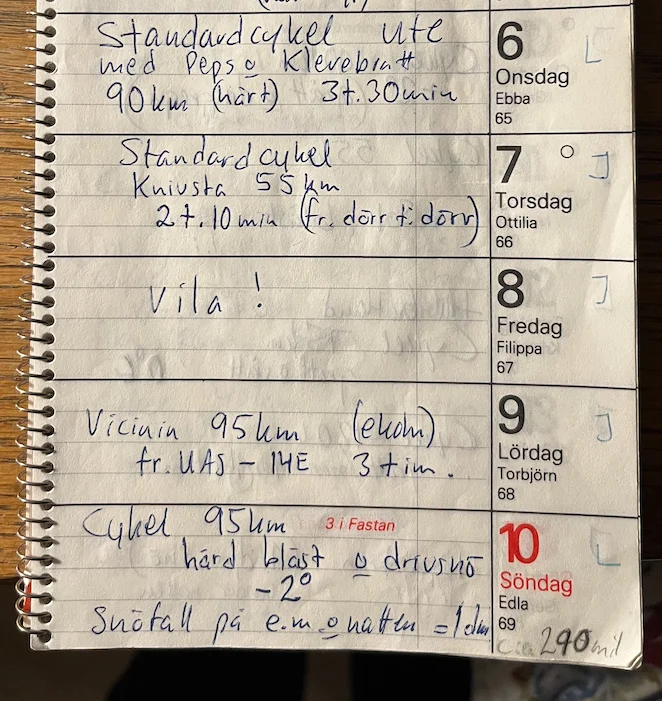 Standardcykel ute
med Peps o Klevebratt
90 km (hårt) 3t.30min
6
Onsdag
Ebba
65
L
Standardcykel
Knivsta 55 km
2t.10 min (fr. dörr t. dörr)
7
Torsdag
Ottilia
66
J
Vila !
8
Fredag
Filippa
67
J
95km
fr. UAS - 14E 3 tim.
9
Lördag
Torbjörn
68
J
Cykel 95km 3 i Fastan
hård blåst o drivsnö
-2°
Snöfall på e.m. o natten = 1 dm
10
Söndag
Edla
69
L
290 mil